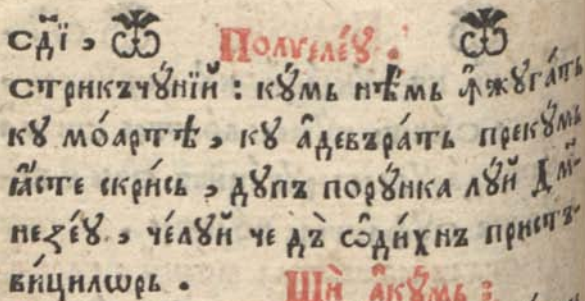 сд҃їй , Ѿ Полѵелéꙋ . Ѿ
стрикъчꙋ́нїй : кꙋ́мь нѣ́мь ꙟжꙋгáть
кꙋ мóартѣ , кꙋ а҆девъράть прекꙋ́мь
ꙗ҆́сте скрúсь , дꙋпъ порꙋ́нка лꙋй Дм҃
незéꙋ , чéлꙋй че дъ̀ ѡ҆дúхнъ пристъ-
вúцилѡрь .
Шѝ а҆кꙋ́мь :